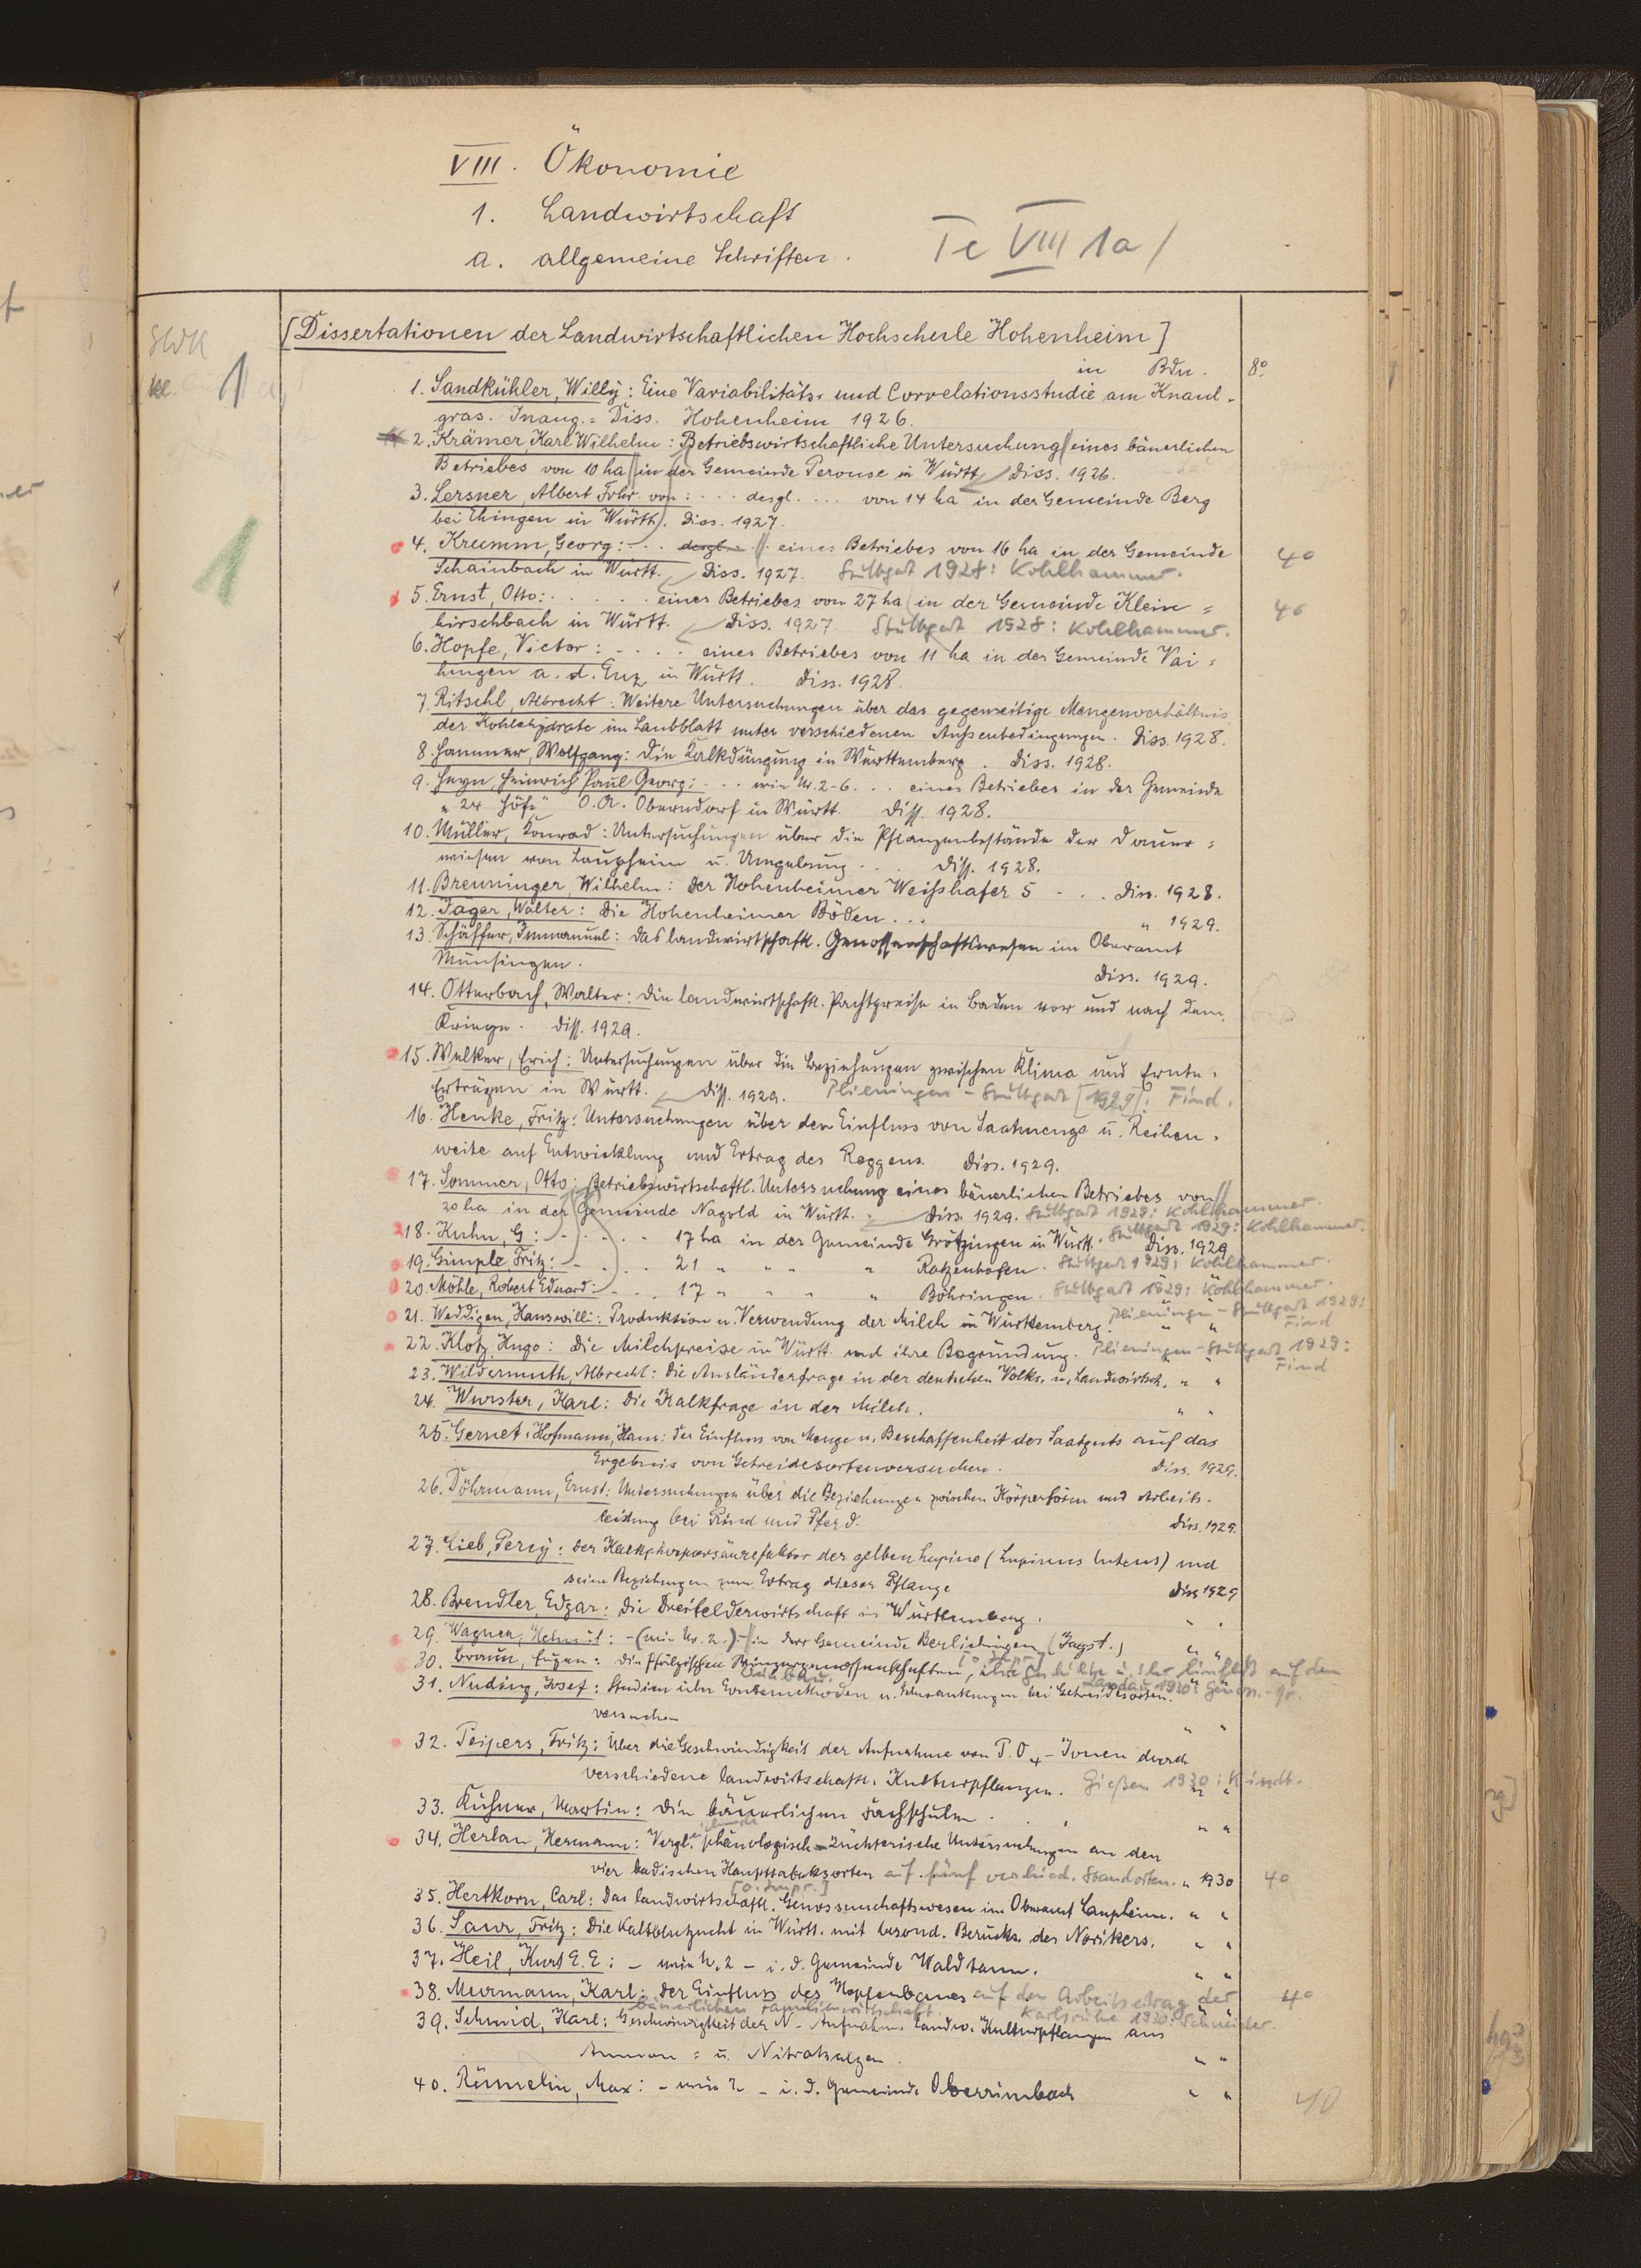 VIII. Ökonomie
1. Landwirtschaft
a. allgemeine Schriften.
Te VIII 1a/
SWK
1
[Dissertationen der Landwirtschaftlichen Hochschule Hohenheim]
in Bdn. 8°
1. Sandkühler, Willy: Eine Variabilitäts- und Correlationsstudie am Knaul-
gras. Inaug.=Diss. Hohenheim 1926.
2. Krämer, Karl Wilhelm: Betriebswirtschaftliche Untersuchung eines bäuerlichen
Betriebes von 10 ha in der Gemeinde Perouse in Württ. Diss. 1926.
3. Lersner, Albert Frhr. von: ... desgl. ... von 14 ha in der Gemeinde Berg
bei Ehingen in Württ. Diss. 1927.
4. Krumm, Georg: ... desgl. ... eines Betriebes von 16 ha in der Gemeinde 40
Schainbach in Württ. Diss. 1927. Stuttgart 1928: Kohlhammer.
5. Ernst, Otto: ..... eines Betriebes von 27 ha in der Gemeinde Klein= 40
hirschbach in Württ. Diss. 1927 Stuttgart 1928: Kohlhammer.
6. Hopfe, Victor: .... eines Betriebes von 11 ha in der Gemeinde Vai=
hingen a. d. Enz in Württ. Diss. 1928.
7. Ritschl, Albrecht: Weitere Untersuchungen über das gegenseitige Mengenverhältnis
der Kohlehydrate im Laubblatt unter verschiedenen Außenbedingungen. Diss. 1928.
8. Hammer, Wolfgang: Die Kalkdüngung in Württemberg. Diss. 1928.
9. Heyn, Heinrich Paul Georg: ... wie Nr. 2-6 ... eines Betriebes in der Gemeinde
"24 Höfe" O.A. Oberndorf in Württ. Diss. 1928.
10. Müller, Konrad: Untersuchungen über die Pflanzenbestände der Dauer=
wiesen von Laupheim u. Umgebung ... Diss. 1928.
11. Breuninger, Wilhelm: Der Hohenheimer Weißhafer 5 ... Diss. 1928.
12. Jäger, Walter: Die Hohenheimer Böden ... " 1929.
13. Schäffer, Immanuel: Das landwirtschaftl. Genossenschaftswesen im Oberamt
Münsingen. Diss. 1929.
14. Otterbach, Walter: Die landwirtschaftl. Pachtpreise in Baden vor und nach dem
Kriege. Diss. 1929.
15. Walker, Erich: Untersuchungen über die Beziehungen zwischen Klima und Ernte-
Erträgen in Württ. Diss. 1929. Plieningen-Stuttgart [1929]: Find.
16. Henke, Fritz: Untersuchungen über den Einfluss von Saatmenge u. Reihen-
weite auf Entwicklung und Ertrag des Roggens. Diss. 1929.
17. Sommer, Otto: Betriebswirtschaftl. Untersuchung eines bäuerlichen Betriebes von
20 ha in der Gemeinde Nagold in Württ. Diss. 1929. Stuttgart 1929: Kohlhammer.
18. Kuhn, G: ..... 17 ha in der Gemeinde Grötzingen in Württ. Diss. 1929 Stuttgart 1929: Kohlhammer.
19. Gimple, Fritz: .... 21 " " " " Ratzenhofen. Stuttgart 1929: Kohlhammer.
20. Möhle, Robert Eduard: ... 17 " " " " Böhringen. Stuttgart 1929: Kohlhammer.
21. Weddigen, Hanswilli: Produktion u. Verwendung der Milch in Württemberg. " " Plieningen-Stuttgart 1929: Find
22. Klotz, Hugo: Die Milchpreise in Württ. und ihre Begründung. Plieningen-Stuttgart 1929: Find
23. Wildermuth, Albrecht: Die Ausländerfrage in der deutschen Volks- u. Landwirtsch. " "
24. Wurster, Karl: Die Kalkfrage in der Milch. " "
25. Gernet-Hofmann, Hans: Der Einfluss von Menge u. Beschaffenheit des Saatguts auf das
Ergebnis von Getreidesortenversuchen. Diss. 1929.
26. Döhrmann, Ernst: Untersuchungen über die Beziehungen zwischen Körperform und Arbeits-
leistung bei Rind und Pferd. Diss. 1929.
27. Lieb, Percy: Der Kalkphosphorsäurefaktor der gelben Lupine (Lupinus luteus) und
seine Beziehungen zum Ertrag dieser Pflanze Diss 1929
28. Brendler, Edgar: Die Dreifelderwirtschaft in Württemberg. " "
29. Wagner, Helmut: -(wie Nr. 2.)- in der Gemeinde Berlichingen (Jagst.) " "
30. Braun, Eugen: Die Pfälzischen Winzergenossenschaften, ihre Geschichte u. ihr Einfluß auf den
Weinbau. Landau 1930:
31. Nuding, Josef: Studien über Erntemethoden u. Schwankungen bei Getreidesorten-
versuchen " "
32. Teipers, Fritz: Über die Geschwindigkeit der Aufnahme von P.O4-Ionen durch
verschiedene landwirtschaftl. Kulturpflanzen. Gießen 1930: Kindt.
33. Kühner, Martin: Die bäuerlichen Fachschulen. " "
34. Herlan, Hermann: Vergl. phänologisch-züchterische Untersuchungen an den
vier badischen Haupttabaksorten auf fünf verschied. Standorten. " 1930 40
[o. Impr.]
35. Hertkorn, Carl: Das landwirtschaftl. Genossenschaftswesen im Oberamt Laupheim. " "
36. Saur, Fritz: Die Kaltblutzucht in Württ. mit besond. Berücks. des Norikers. " "
37. Heil, Kurt E. E: - wie N. 2 - i. d. Gemeinde Waldtann. " "
38. Murmann, Karl: Der Einfluss des Hopfenbaues auf den Arbeitsertrag der 40
bäuerlichen Familienwirtschaft. Karlsruhe 1930: Schneider.
39. Schmid, Karl: Geschwindigkeit der N-Aufnahme landw. Kulturpflanzen aus
Ammon= u. Nitratsalzen. " "
40. Rümelin, Max: - wie 2 - i. d. Gemeinde Oberrimbach " "
40